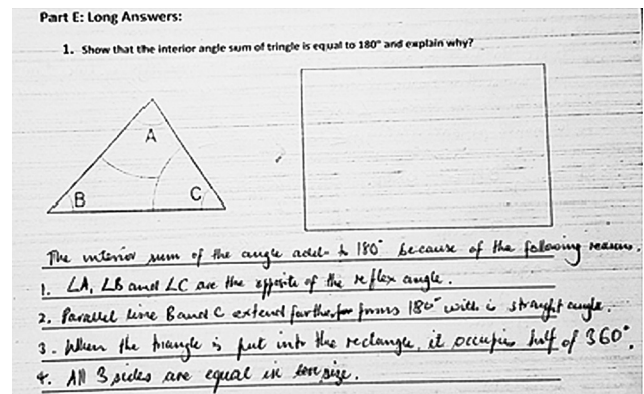 Part E: Long Answers:
1. Show that the interior angle sum of tringle is equal to 180° and explain why?
A
B
C
The interior sum of the angle adds to 180° because of the following reasons.
1. LA, LB and LC are the opposite of the reflex angle.
2. Paralel line B and C extend further forms 180° with is straight angle.
3. When the triangle is put into the rectangle, it occupies half of 360°.
4. All 3 sides are equal in size.